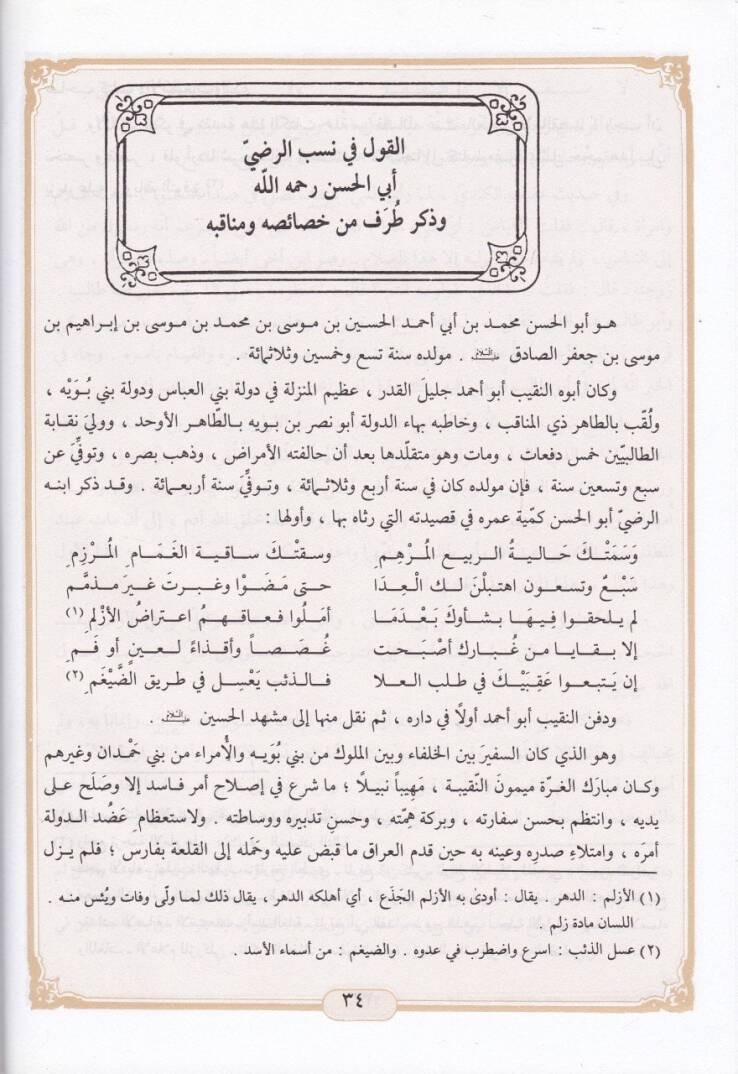 القول في نسب الرضيّ
أبي الحسن رحمه اللّه
وذكر طُرَف من خصائصه ومناقبه
هـو أبو الحسن محمد بن أبي أحمد الحسين بن موسى بن محمد بن موسى بن إبراهيم بن
موسى بن جعفر الصادق عليه السلام . مولده سنة تسع وخمسين وثلاثمائة .
وكان أبوه النقيب أبو أحمد جليلَ القدر ، عظيم المنزلة في دولة بني العباس ودولة بني بُوَيْه ،
ولُقّب بالطاهر ذي المناقب ، وخاطبه بهاء الدولة أبو نصر بن بويه بالطّاهر الأوحد ، ووليَ نقابة
الطالبيّين خمس دفعات ، ومات وهو متقلّدها بعد أن حالفته الأمراض ، وذهب بصره ، وتوفّيَ عن
سبع وتسعين سنة ، فإن مولده كان في سنة أربع وثلاثمائة ، وتوفّيَ سنة أربعمائة . وقد ذكر ابنه
الرضيّ أبو الحسن كمّية عمره في قصيدته التي رثاه بها ، وأولها :
وَسَمَتْكَ حَاليةُ الربيع المُرْهِمِ وسقتْكَ ساقية الغَمَامِ المُرْزِمِ
سَبْعٌ وتسعون اهتبلْنَ لك العِدَا حتى مَضَوْا وغبرتَ غيرَ مذمَّم
لم يلحقوا فِيهَا بشأوكَ بَعْدَمَا أمَلُوا فعاقهمُ اعتراضُ الأزْلمِ (١)
إلا بقايا من غُبارك أصْبَحت غُصَصاً وأقذاءً لعينٍ أو فَمِ
إن يَتبعوا عَقِبَيْكَ في طلب العلا فالذئب يَعْسِل في طريق الضَّيْغَمِ (٢)
ودفن النقيب أبو أحمد أولًا في داره ، ثم نقل منها إلى مشهد الحسين عليه السلام .
وهو الذي كان السفيرَ بين الخلفاء وبين الملوك من بني بُوَيه والأمراء من بني حَمْدان وغيرهم
وكان مبارَك الغرّة ميمونَ النّقيبة ، مَهِيباً نبيلًا ؛ ما شرع في إصلاح أمر فاسد إلا وصَلَح على
يديه ، وانتظم بحسن سفارته ، وبركة همّته ، وحسنِ تدبيره ووساطته . ولاستعظامِ عَضُد الدولة
أمرَه ، وامتلاءِ صدرِه وعينه به حين قدم العراق ما قبض عليه وحَمَله إلى القلعة بفارس ؛ فلم يزل
(١) الأزلم : الدهر . يقال : أودى به الأزلم الجَذَع ، أي أهلكه الدهر ، يقال ذلك لما ولّى وفات ويُئس منه .
اللسان مادة زلم .
(٢) عسل الذئب : اسرع واضطرب في عدوه . والضيغم : من أسماء الأسد .
٣٤